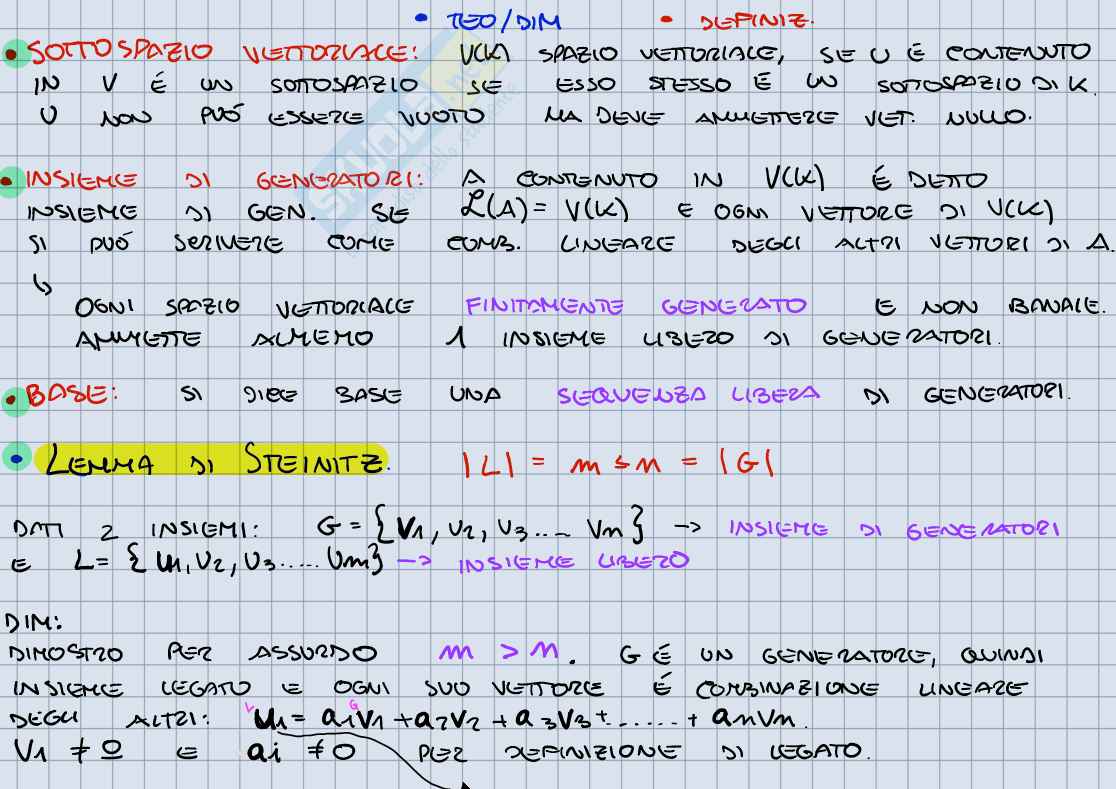 • TEO/DIM • DEFINIZ.
• SOTTOSPAZIO VETTORIALE: V(K) SPAZIO VETTORIALE, SE U É CONTENUTO
IN V É UN SOTTOSPAZIO SE ESSO STESSO É UN SOTTOSPAZIO DI K.
U NON PUÓ ESSERE VUOTO MA DEVE AMMETTERE VET. NULLO.
• INSIEME DI GENERATORI: A CONTENUTO IN V(K) É DETTO
INSIEME DI GEN. SE L(A) = V(K) E OGNI VETTORE DI V(K)
SI PUÓ SCRIVERE COME COMB. LINEARE DEGLI ALTRI VETTORI DI A.
↳
OGNI SPAZIO VETTORIALE FINITAMENTE GENERATO E NON BANALE.
AMMETTE ALMENO 1 INSIEME LIBERO DI GENERATORI.
• BASE: SI DICE BASE UNA SEQUENZA LIBERA DI GENERATORI.
• LEMMA DI STEINITZ. |L| = m ≤ n = |G|
DATI 2 INSIEMI: G = {V1, V2, V3... Vn} -> INSIEME DI GENERATORI
E L = {U1, U2, U3..... Um} -> INSIEME LIBERO
DIM:
DIMOSTRO PER ASSURDO m > n. G É UN GENERATORE, QUINDI
INSIEME LEGATO E OGNI SUO VETTORE É COMBINAZIONE LINEARE
DEGLI ALTRI: U1 = a1V1 + a2V2 + a3V3 + ...... + anVn.
V1 ≠ 0 E ai ≠ 0 PER DEFINIZIONE DI LEGATO.